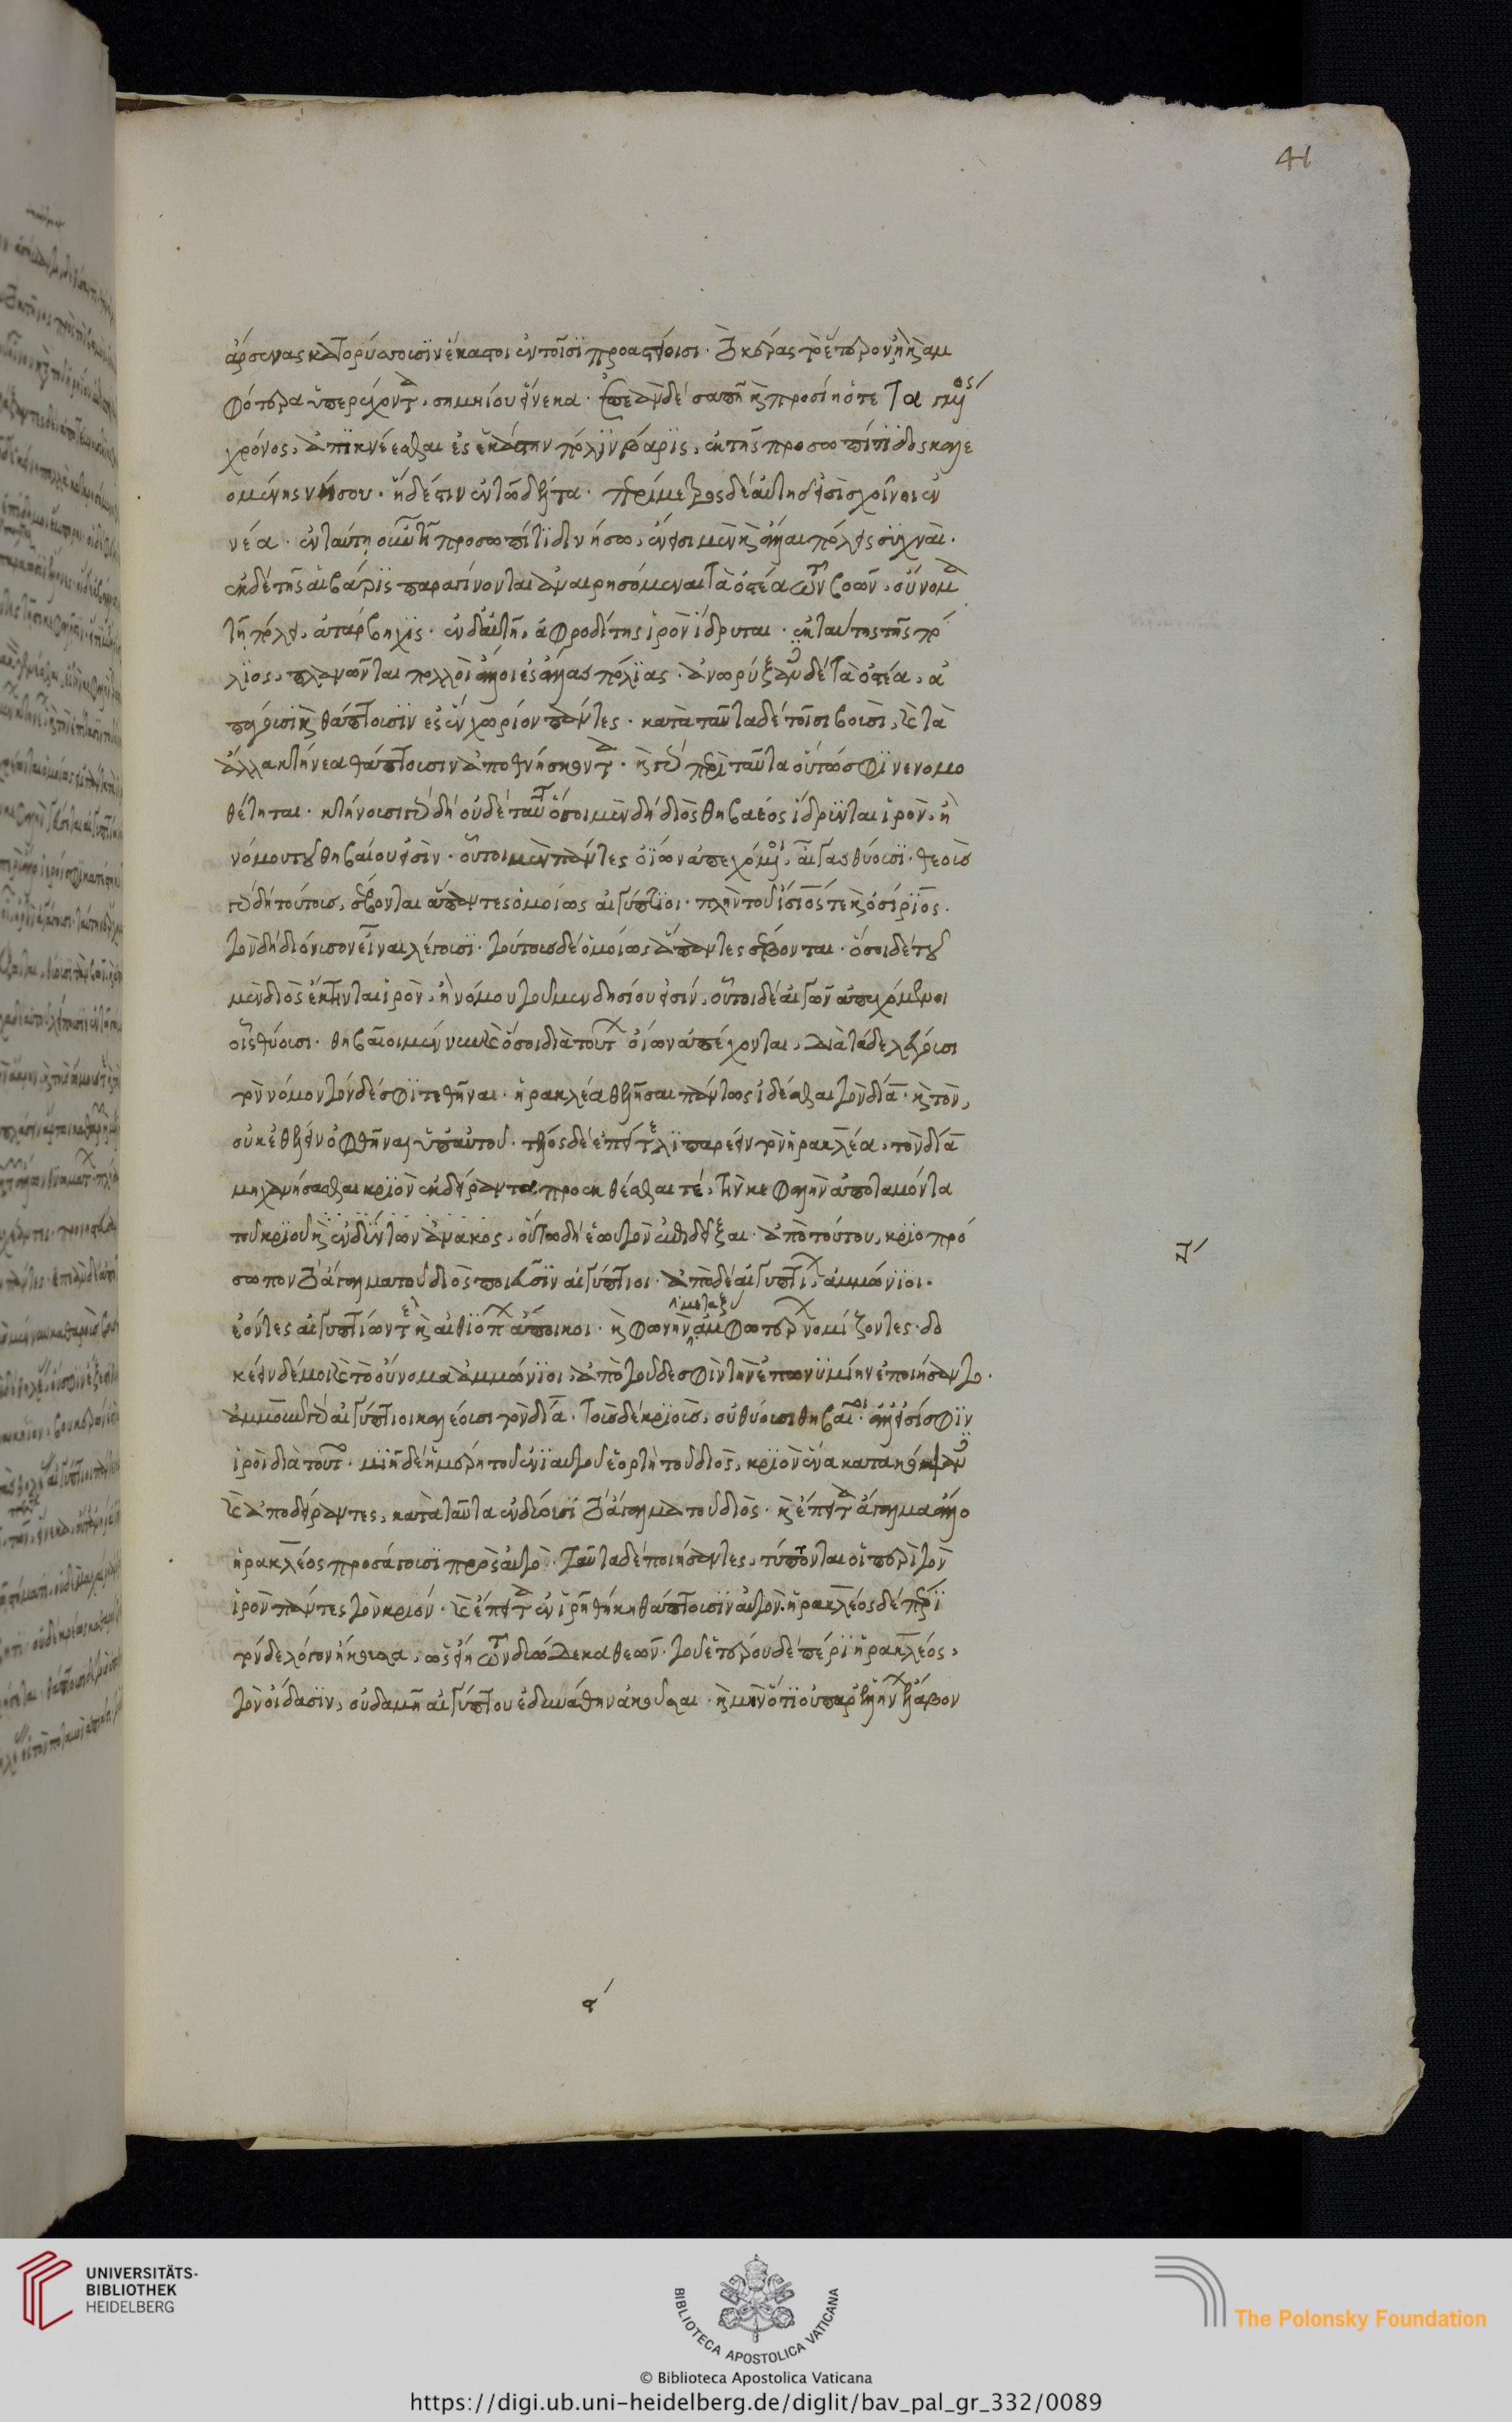 41
ἄρσενας κατορύσσουσϊν ἕκαστοι ἐν τοῖσϊ προαστείοισι. τὸ κέρας τὸ ἕτερον ἢ καὶ ἀμ
φότερα ὑπερέχοντα, σημηίου εἵνεκα. ἐπεὰν δὲ σαπῇ καὶ προσίῃ ὅτε ταγμένος
χρόνος, ἀπϊκνέεσθαι ἐς ἑκάστην πόλϊν βάρϊς, ἐκ τῆς προσωπίτϊδος καλε
ομένης νήσου. ἡ δέ ἐστιν ἐν τῶ δέλτα. περίμετρος δὲ αὐτῆς εἰσὶ σχοῖνοι ἐν
νέα. ἐν ταύτῃ ὦν τῇ προσωπίτϊδι νήσω, ἔνεισι μὲν καὶ ἄλλαι πόλεις συχναὶ.
ἐκ δὲ τῆς αἱ βάρϊς παραγίνονται ἀναιρησόμεναι τὰ ὀστέα τῶν βοῶν, οὔνομα
τῇ πόλει, ἀτάρβηχϊς. ἐν δ᾽ αὐτῇ, ἀφροδίτης ἱρὸν ἵδρυται. ἐκ ταύτης τῆς πό
λϊος, πλανῶνται πολλοὶ ἄλλοι ἐς ἄλλας πόλϊας. ἀνορύξαντες δὲ τὰ ὀστέα, ἀ
πάγουσϊ καὶ θάπτουσϊν ἐς ἓν χωρίον πάντες. κατὰ ταῦτα δὲ τοῖσι βουσὶ, καὶ τὰ
ἄλλα κτήνεα θάπτουσιν ἀποθνήσκοντα. καὶ γὰρ περὶ ταῦτα οὕτω σφϊ νενομο
θέτηται. κτήνουσι γὰρ δὴ οὐδὲ ταῦτα ὅσοι μὲν δὴ διὸς θηβαέος ἵδρυνται ἱρὸν, ἢ
νόμου τοῦ θηβαίου εἰσὶν. οὗτοι μὲν πάντες ὀΐων ἀπεχόμενοι, αἶγας θύουσϊ. θεοὺς
γὰρ δὴ τούτους, σέβονται ἅπαντες ὁμοίως αἰγύπτϊοι. πλὴν τοῦ ἴσιός τε καὶ ὀσίρϊος.
τὸν δὴ διόνυσον εἶναι λέγουσϊ. τούτους δὲ ὁμοίως ἅπαντες σέβονται. ὅσοι δὲ τοῦ
μὲν διὸς ἔκτηνται ἱρὸν, ἢ νόμου τοῦ μενδησίου εἰσίν, οὗτοι δὲ αἰγῶν ἀπεχόμενοι
οἶς θύουσι. θηβαῖοι μέν νυν καὶ ὅσοι διὰ τούτους ὀΐων ἀπέχονται, διὰ τάδε λέγουσι
τὸν νόμον τόνδε σφϊ τεθῆναι. ἡρακλέα θελῆσαι πάντως ἰδέσθαι τὸν δία. καὶ τὸν,
οὐκ ἐθέλειν ὀφθῆναι ὑπ᾽ αὐτοῦ. τέλος δὲ ἐπεί τε λιπαρέειν τὸν ἡρακλέα, τὸν δία
μηχανήσασθαι κριὸν ἐκδείραντα προσκθέσθαι τέ, τὴν κεφαλὴν ἀποταμόντα
τοῦ κριοῦ καὶ ἐνδύντων ἄνακος, οὕτω δή ἑωυτὸν ἐπιδεῖξαι. ἀπὸ τούτου, κρϊοπρό
σωπον τὸ ἄγαλμα τοῦ διὸς ποιεῦσϊν αἰγύπτιοι. ἀπὸ δὲ αἰγυπτίων, ἀμμώνϊοι.
ἐόντες αἰγυπτίων τε καὶ αἰθϊόπων ἄποικοι. καὶ φωνὴν μεταξὺ ἀμφοτέρων νομίζοντες. δο
κέειν δέ μοι καὶ τὸ οὔνομα ἀμμώνϊοι, ἀπὸ τοῦδε σφὶν τὴν ἐπωνυμίην ἐποιήσαντο.
ἀμμοῦν γὰρ αἰγύπτιοι καλέουσι τὸν δία. τοὺς δὲ κρϊοὺς, οὐ θύουσι θηβαῖοι. ἀλλ᾽ εἰσί σφϊν
ἱροὶ διὰ τοῦτο. μϊῇ δὲ ἡμέρῃ τοῦ ἐνϊαυτοῦ ἑορτῇ τοῦ διὸς, κρϊὸν ἕνα κατακόψαντες
καὶ ἀποδείραντες, κατὰ ταῦτα ἐνδύουσϊ τὸ ἄγαλμα τοῦ διὸς. καὶ ἔπειτα ἄγαλμα ἄλλο
ἡρακλέος προσάγουσϊ πρὸς αὐτὸ. ταῦτα δὲ ποιήσαντες, τύπτονται οἱ περὶ τὸν
ἱρὸν πάντες τὸν κριόν. καὶ ἔπειτα ἐν ἱρῇ θήκῃ θάπτουσϊν αὐτόν. ἡρακλέος δὲ πέρϊ
τόνδε λόγον ἤκουσα, ὡς εἴη τῶν δυώδεκα θεῶν. τοῦ ἑτέρου δὲ πέρϊ ἡρακλέος,
τὸν οἴδασϊν, οὐδαμῇ αἰγύπτου ἐδυνάσθην ἀκοῦσαι. καὶ μὴν ὅτϊ οὐ παρ᾽ ἑλλήνων ἔλαβον
UNIVERSITÄTS-
BIBLIOTHEK
HEIDELBERG
BIBLIOTECA APOSTOLICA VATICANA
The Polonsky Foundation
© Biblioteca Apostolica Vaticana
https://digi.ub.uni-heidelberg.de/diglit/bav_pal_gr_332/0089